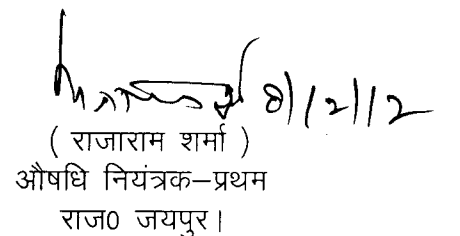 8/12/12
( राजाराम शर्मा )
औषधि नियंत्रक–प्रथम
राज0 जयपुर।